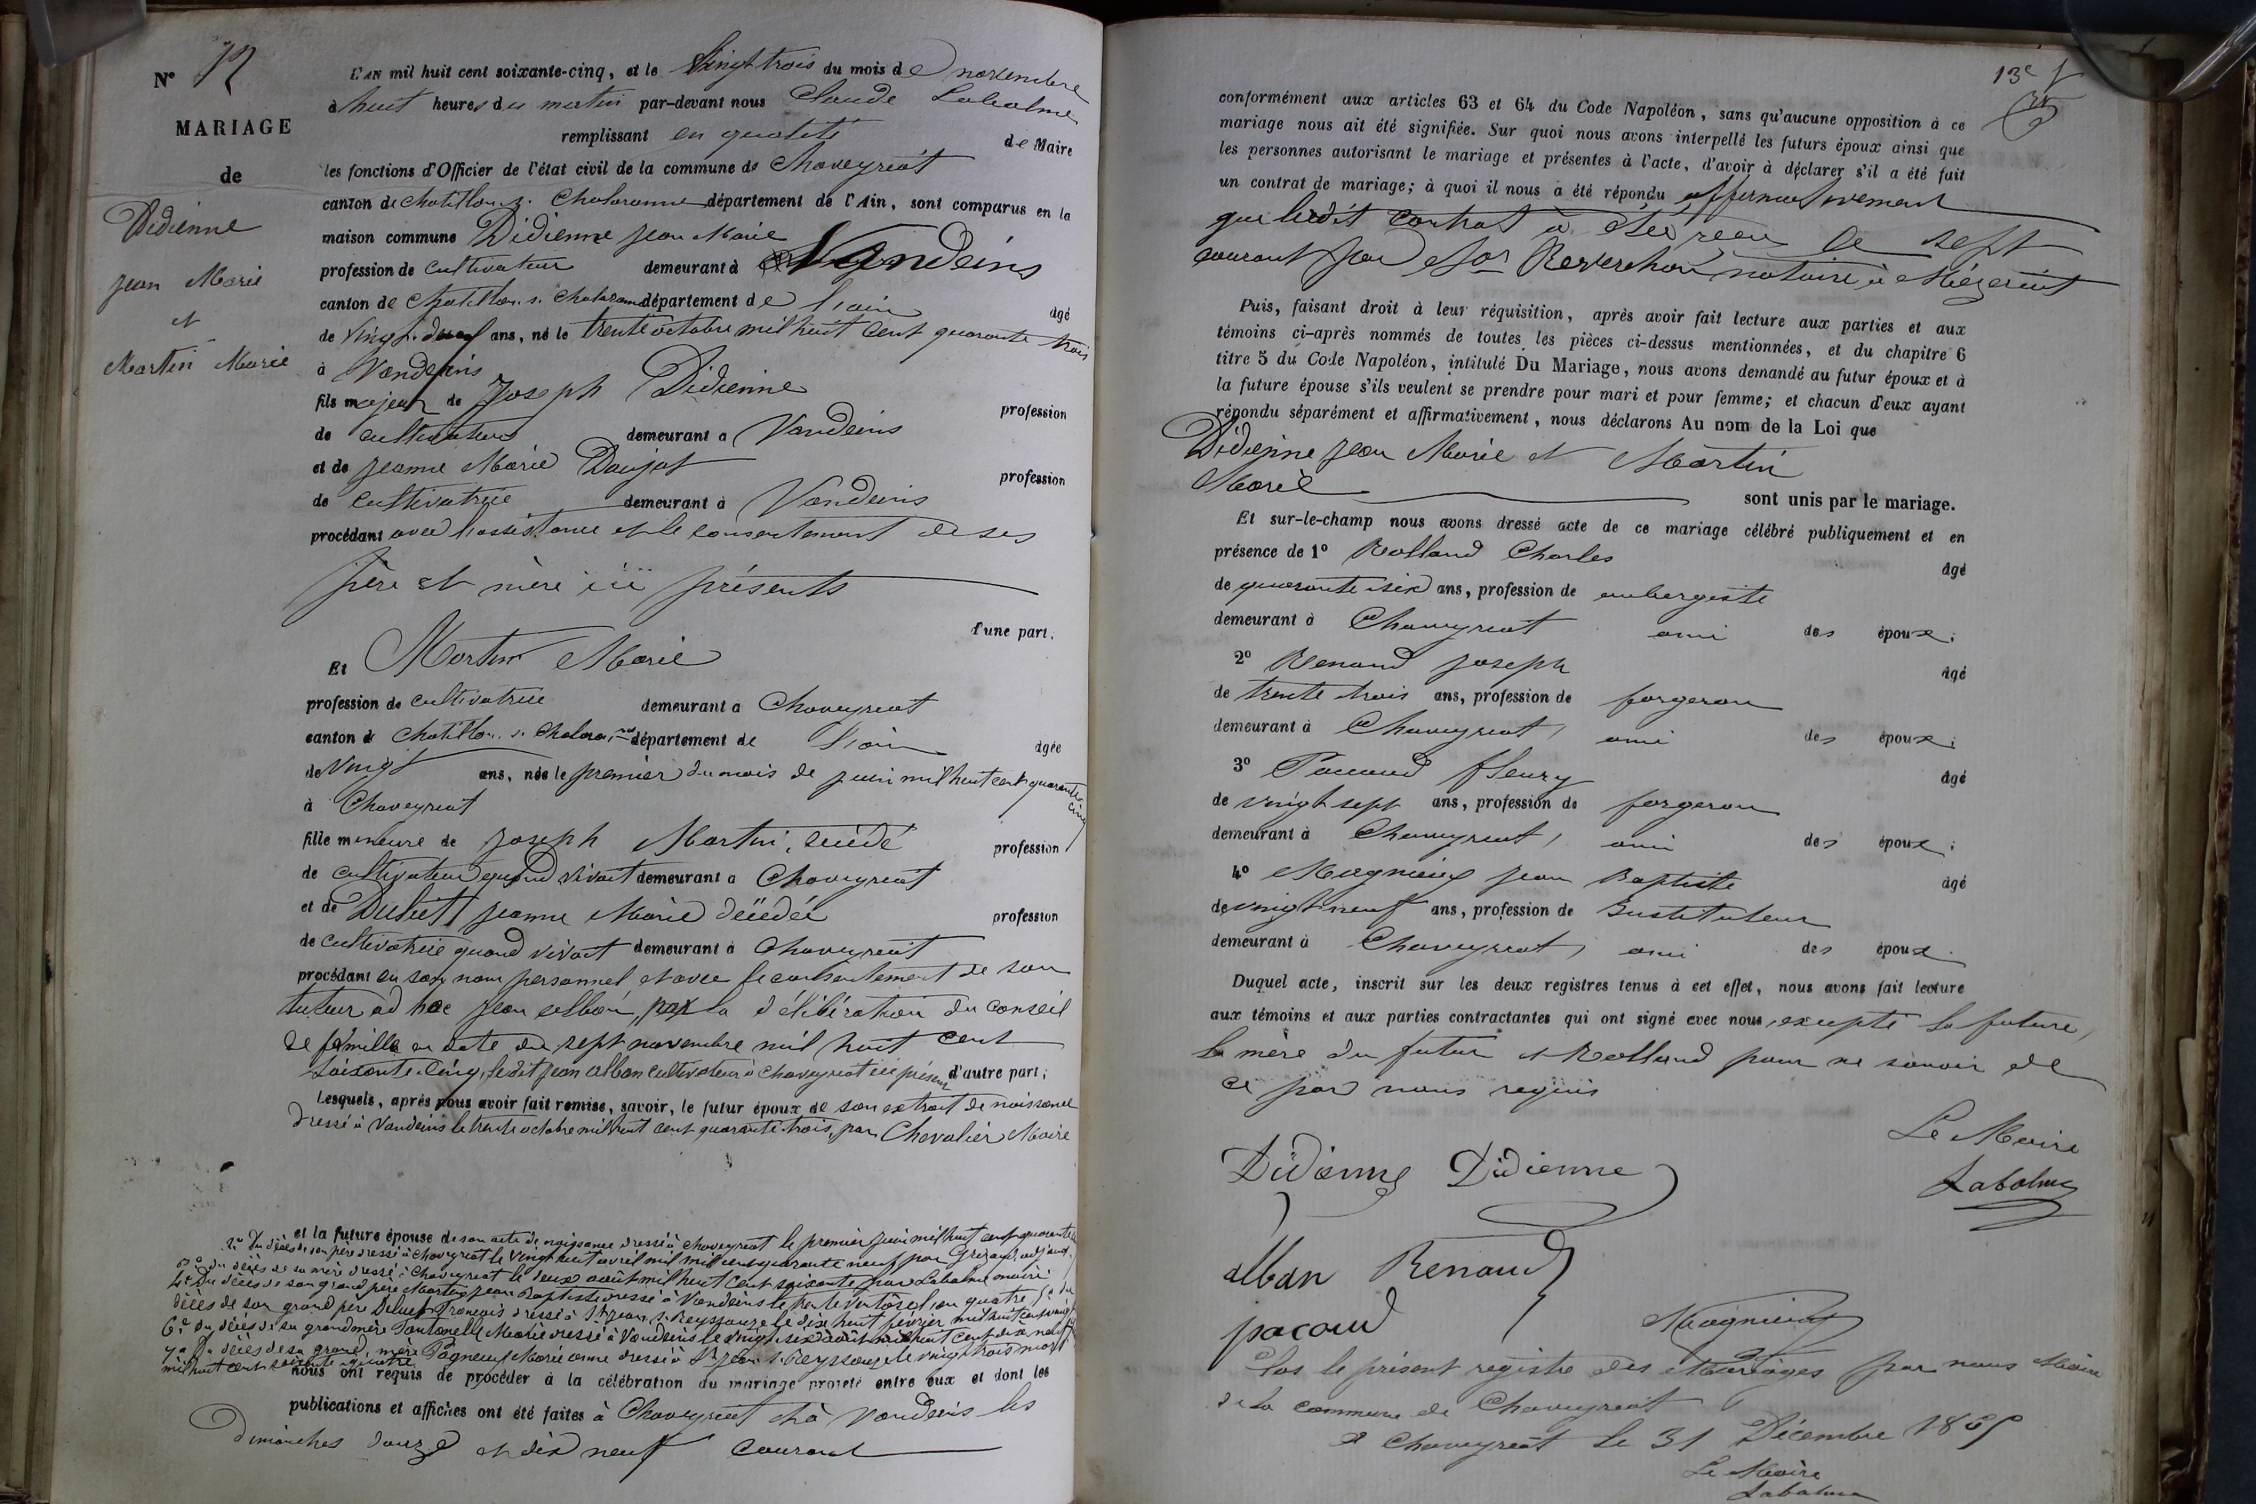 N° 12
MARIAGE
de
Didienne
jean Marie
et
Martin Marie
L'AN mil huit cent soixante-cinq, et le vingt trois du mois de novembre
à huit heures du matin par-devant nous Claude Labalme
remplissant en qualité de Maire
les fonctions d'Officier de l'état civil de la commune de Chaveyriat
canton de chatillon s. Chalaronne département de l'Ain, sont comparus en la
maison commune Didienne jean Marie
profession de cultivateur demeurant à Vandeins
canton de chatillon s. Chalaronne département de l'ain âgé
de vingt deux ans, né le trente octobre mil huit cent quarante trois
à Vandeins
fils majeur de Joseph Didienne profession
de cultivateur demeurant a Vandeins
et de jeanne Marie Daujat profession
de cultivatrice demeurant à Vandeins
procédant avec l'assistance et le consentement de ses
père et mère ici présents
d'une part.
Et Martin Marie
profession de cultivatrice demeurant a Chaveyriat
canton de Chatillon s. Chalaronne département de l'ain âgée
de vingt ans, née le premier du mois de juin mil huit cent quarante cinq
à Chaveyriat
fille mineure de joseph Martin, décédé profession
de cultivateur quand vivait demeurant a Chaveyriat
et de jeanne Marie décédée profession
de cultivatrice quand vivait demeurant à Chaveyriat
procédant en son nom personnel et avec le consentement de son
tuteur ad hoc jean alban, par la délibération du conseil
de famille en date du sept novembre mil huit cent
soixante-cinq, ledit jean alban cultivateur à chaveyriat ici présent d'autre part;
Lesquels, après nous avoir fait remise, savoir, le futur époux de son extrait de naissance
dressé à Vandeins le trente octobre mil huit cent quarante-trois, par Chevalier Maire
et la future épouse de son acte de naissance dressé à chaveyriat le premier juin mil huit cent quarante
2° du décès de son père dressé à chaveyriat le vingt huit avril mil huit cent quarante neuf par
3° du décès de sa mère dressé à chaveyriat le deux août mil huit cent soixante par Labalme maire
4° Du décès de son grand père Martin jean Baptiste dressé à Vandeins le trente ventôse l'an quatre 5° du
décès de son grand père françois dressé à St jean s. Reyssouze le dix huit février mil huit cent
6° du décès de sa grand mère Marie dressé à Vandeins le vingt six août mil huit cent dix neuf
7° Du décès de sa grand mère Marie anne dressé à St jean s. Reyssouze le vingt trois
mil huit cent soixante quatre
nous ont requis de procéder à la célébration du mariage projeté entre eux et dont les
publications et affiches ont été faites à Chaveyriat et à Vandeins les
dimanches douze et dix neuf courant
13e
conformément aux articles 63 et 64 du Code Napoléon, sans qu'aucune opposition à ce
mariage nous ait été signifiée. Sur quoi nous avons interpellé les futurs époux ainsi que
les personnes autorisant le mariage et présentes à l'acte, d'avoir à déclarer s'il a été fait
un contrat de mariage; à quoi il nous a été répondu affirmativement
que ledit contrat à été reçu le sept
courant par Reverchon notaire à Mézériat
Puis, faisant droit à leur réquisition, après avoir fait lecture aux parties et aux
témoins ci-après nommés de toutes les pièces ci-dessus mentionnées, et du chapitre 6
titre 5 du Code Napoléon, intitulé Du Mariage, nous avons demandé au futur époux et à
la future épouse s'ils veulent se prendre pour mari et pour femme; et chacun d'eux ayant
répondu séparément et affirmativement, nous déclarons Au nom de la Loi que
Didienne jean Marie et Martin
Marie sont unis par le mariage.
Et sur-le-champ nous avons dressé acte de ce mariage célébré publiquement et en
présence de 1° Rolland Charles âgé
de quarante six ans, profession de aubergiste
demeurant à Chaveyriat ami des époux;
2° Renaud joseph âgé
de trente trois ans, profession de forgeron
demeurant à Chaveyriat, ami des époux;
3° Pacaud fleury âgé
de vingt sept ans, profession de forgeron
demeurant à Chaveyriat, ami des époux;
4° Magnieux jean Baptiste âgé
de vingt neuf ans, profession de Instituteur
demeurant à Chaveyriat, ami des époux.
Duquel acte, inscrit sur les deux registres tenus à cet effet, nous avons fait lecture
aux témoins et aux parties contractantes qui ont signé avec nous, excepté la future,
la mère du futur et Rolland pour ne savoir de
ce par nous requis
Le Maire
Labalme
Didienne Didienne
alban Renaud
pacaud Magnieux
Clos le présent registre des Mariages par nous Maire
de la commune de Chaveyriat
à Chaveyriat le 31 Décembre 1865
Le Maire
Labalme